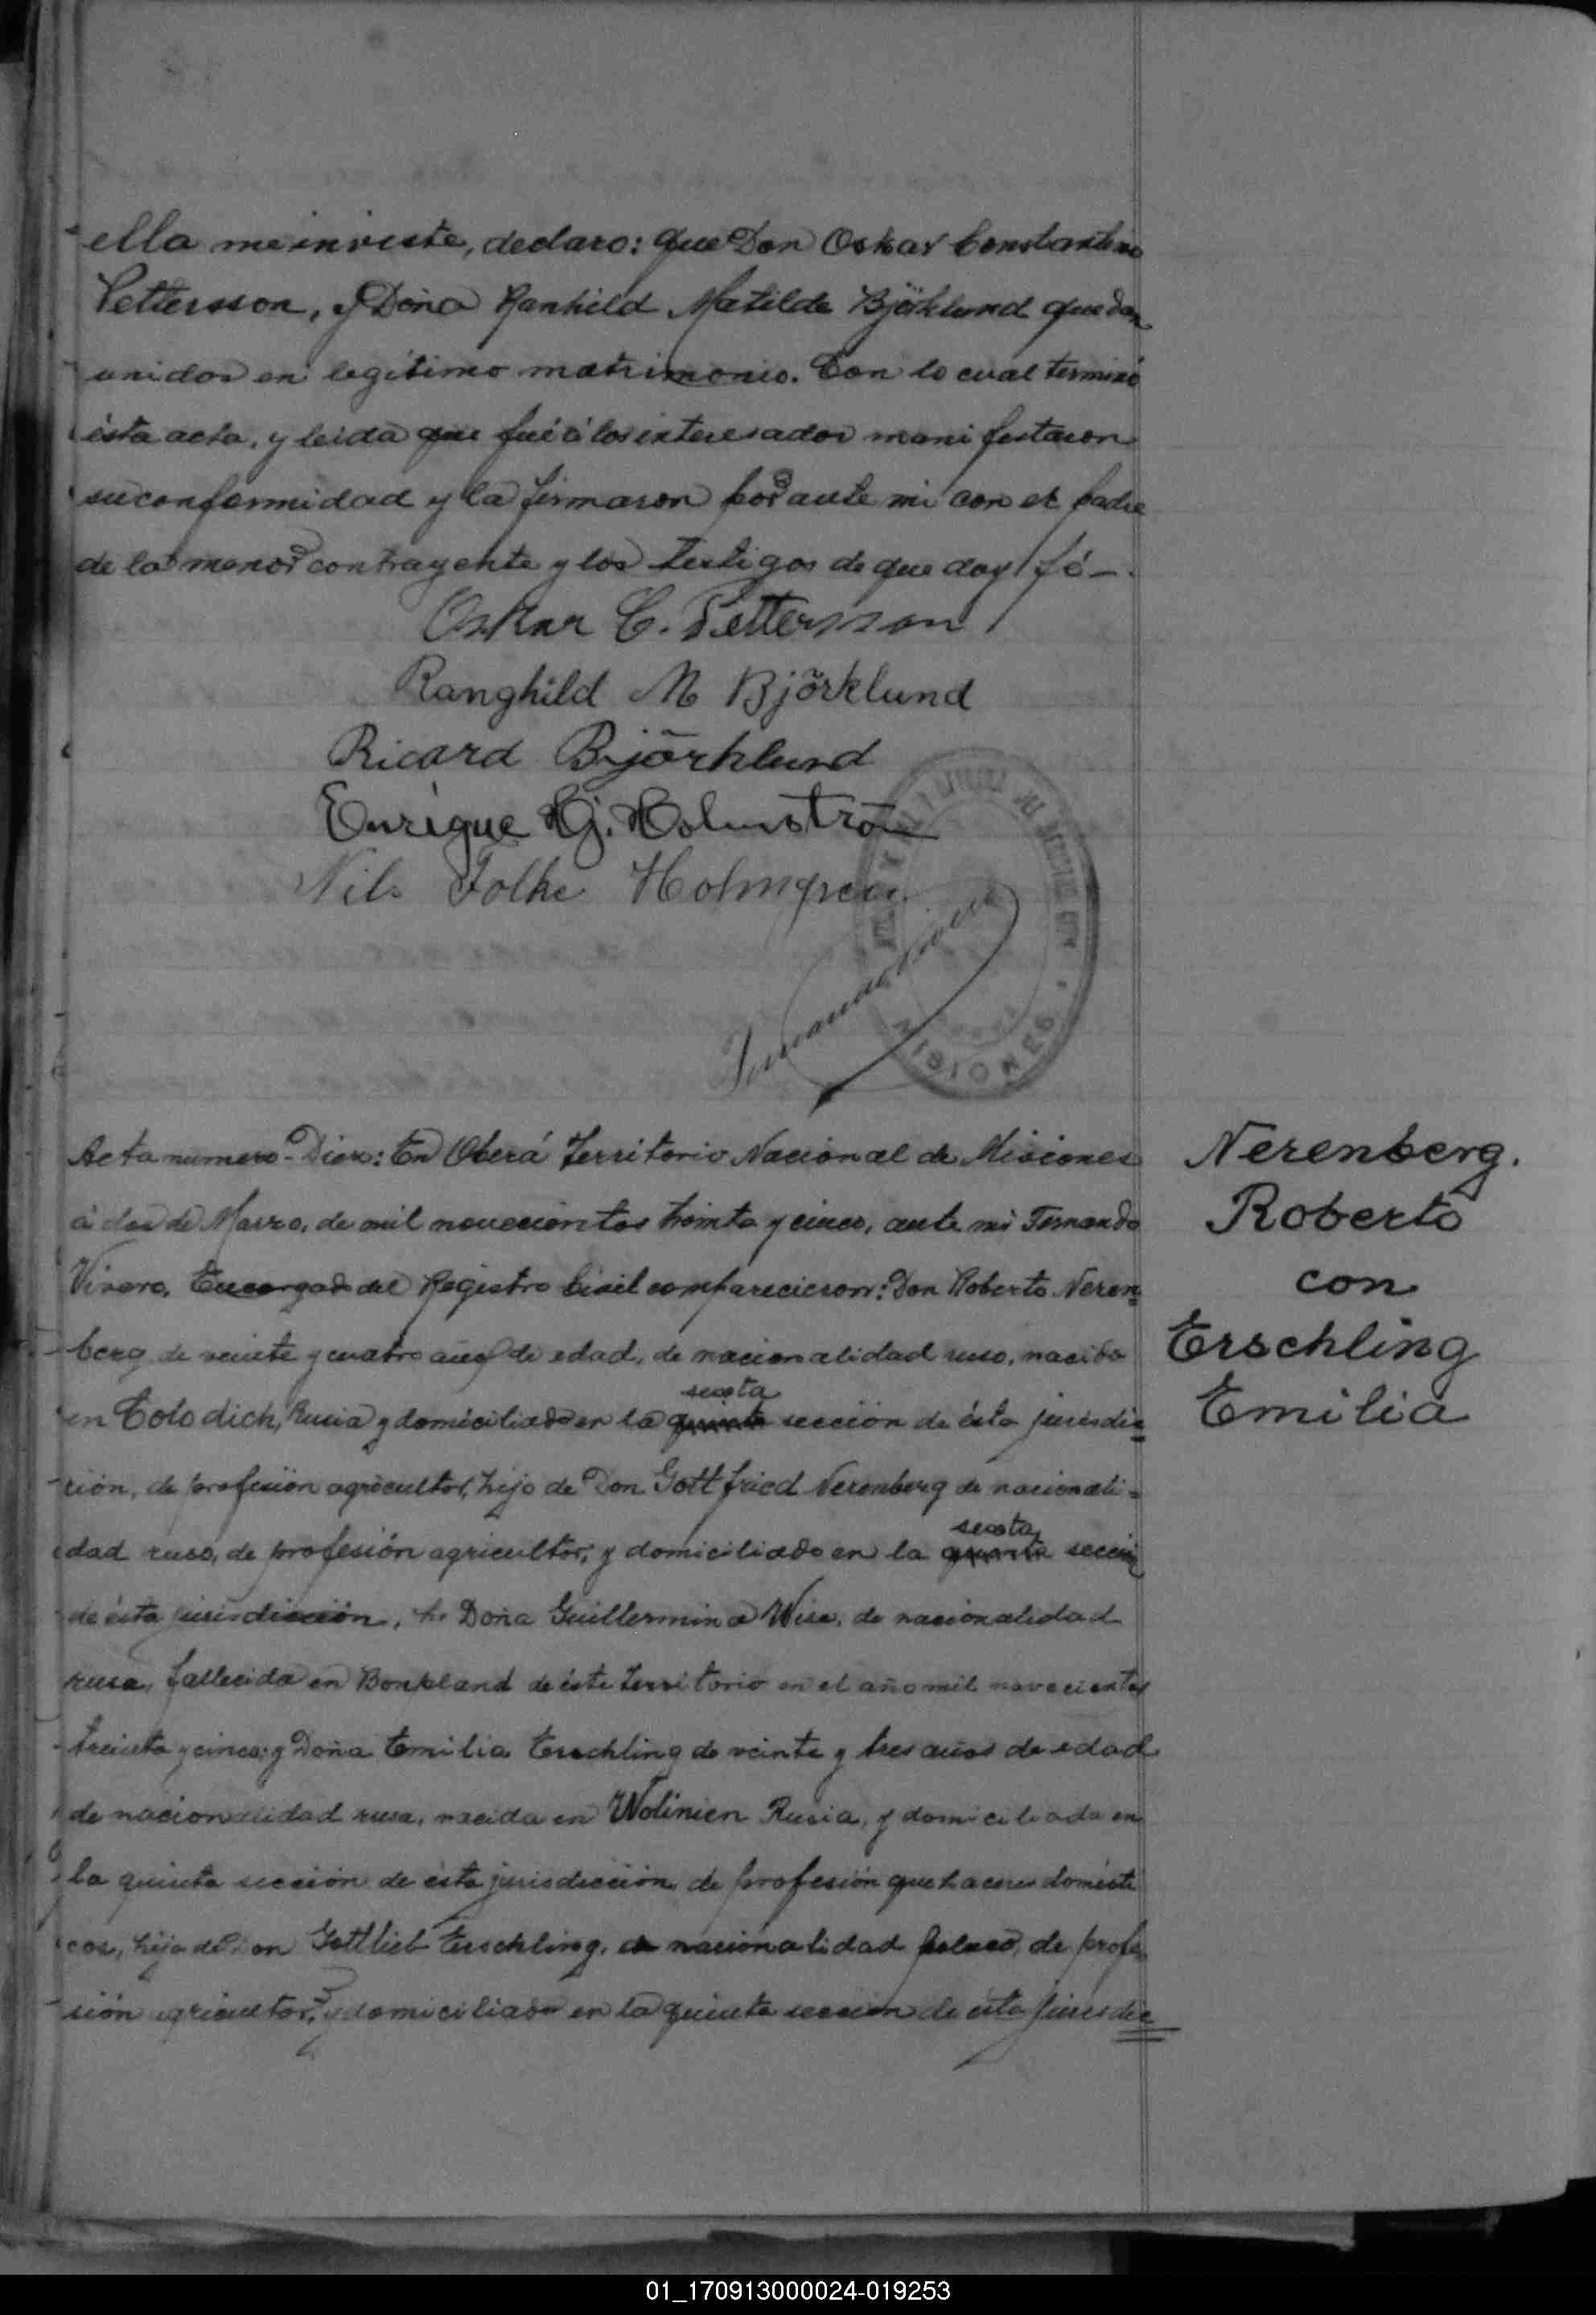 ella me inviste, declaro: que Don Oskar Constantino
Pettersson, y Doña Ranhild Matilde Björklund quedan
unidos en legítimo matrimonio. Con lo cual terminó
ésta acta, y leida que fué á los interesados manifestaron
su conformidad y la firmaron por ante mi con el padre
de la menor contrayente y los testigos de que doy fé-.
Oskar C. Pettersson
Ranghild M Björklund
Ricard Björklund
Enrique Hj. Holmström
Nils Folke Holmgren
MISIONES
Acta numero-Diez: En Oberá Territorio Nacional de Misiones
á dos de Marzo, de mil novecientos treinta y cinco, ante mi Fernando
Vivero, Encargado del Registro Civil comparecieron: Don Roberto Neren=
berg de veinte y cuatro años de edad, de nacionalidad ruso, nacido
sexta
en Colodich, Rusia y domiciliado en la quinta sección de ésta jurisdic=
ción, de profesión agricultor, hijo de Don Gottfried Nerenberg de nacionali=
sexta
dad ruso, de profesión agricultor, y domiciliado en la sección
de ésta jurisdicción, de Doña Guillermina Wise, de nacionalidad
rusa, fallecida en Bonpland de éste territorio en el año mil novecientos
treinta y cinco; y Doña Emilia Erschling de veinte y tres años de edad
de nacionalidad rusa, nacida en Wolinien Rusia, y domiciliada en
la quinta sección de ésta jurisdicción de profesión quehaceres domésti
cos, hija de Don Gottlieb Erschling, de nacionalidad polaco, de profe
sión agricultor, y domiciliado en la quinta sección de esta jurisdic=
Nerenberg.
Roberto
con
Erschling
Emilia
01_170913000024-019253